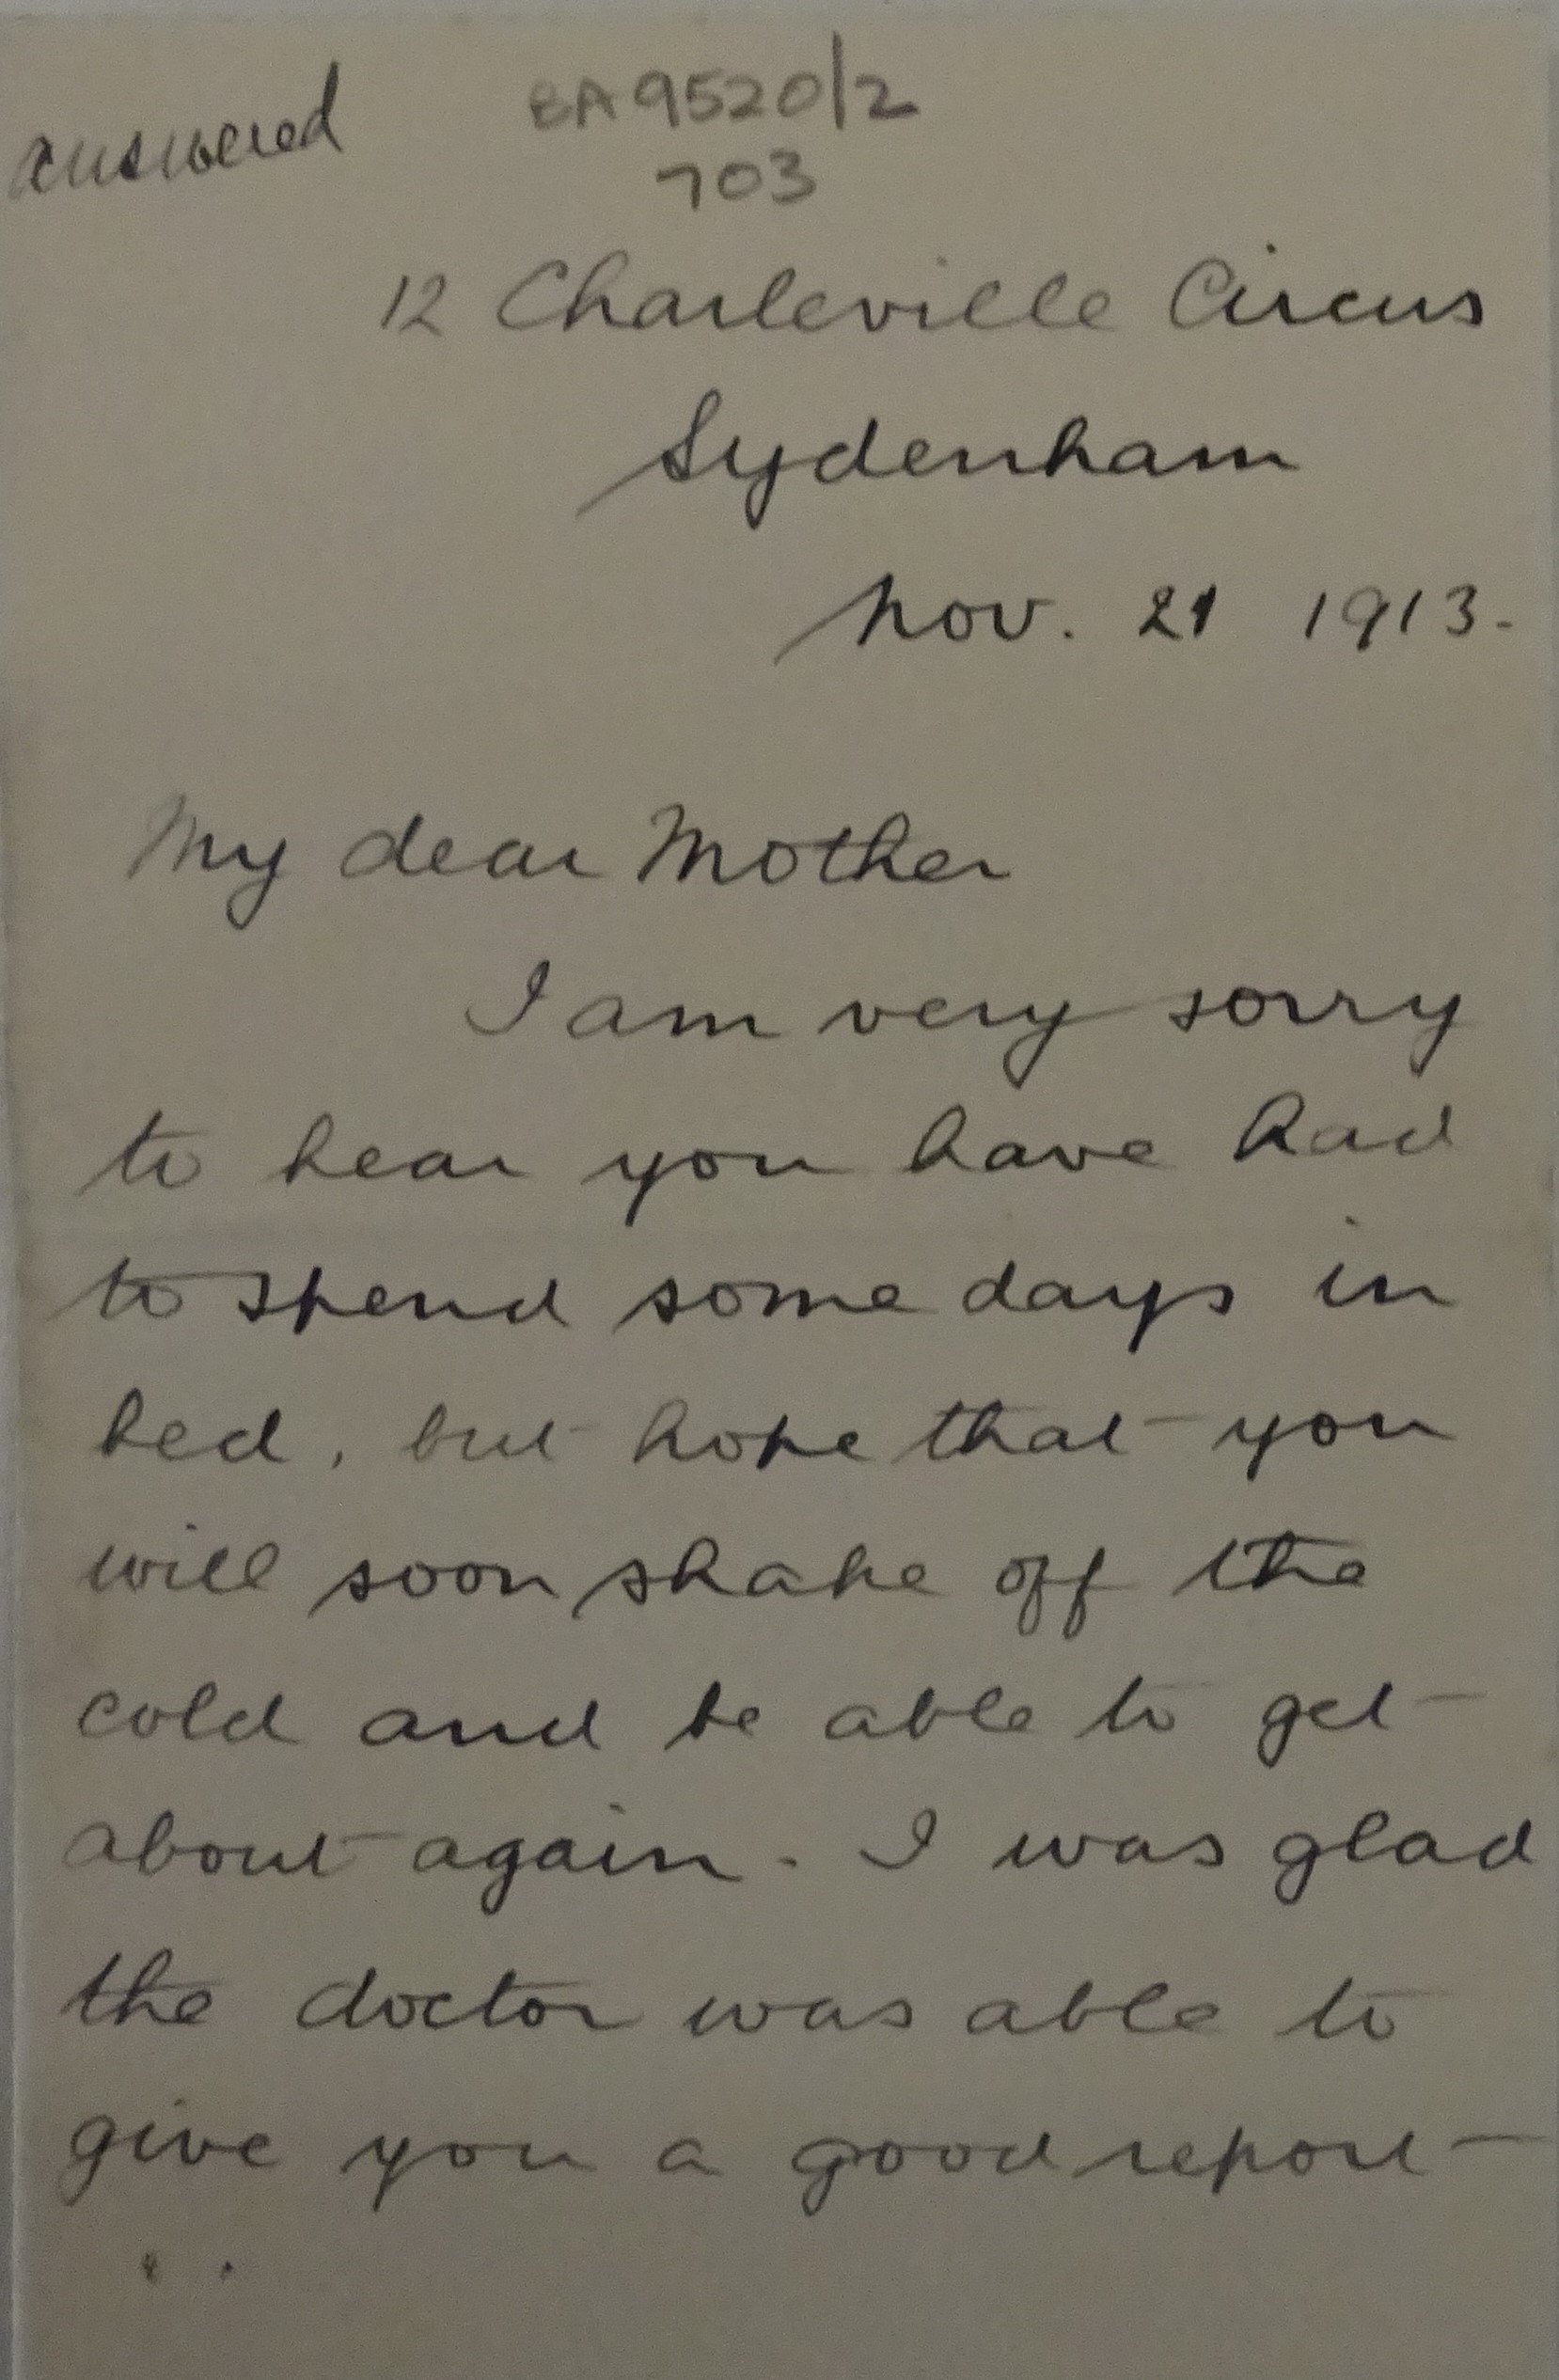 answered
BA 9520/2
703
12 Charleville Circus
Sydenham
Nov. 21 1913.
My dear Mother
I am very sorry
to hear you have had
to spend some days in
bed, but hope that you
will soon shake off the
cold and be able to get
about again. I was glad
the doctor was able to
give you a good report